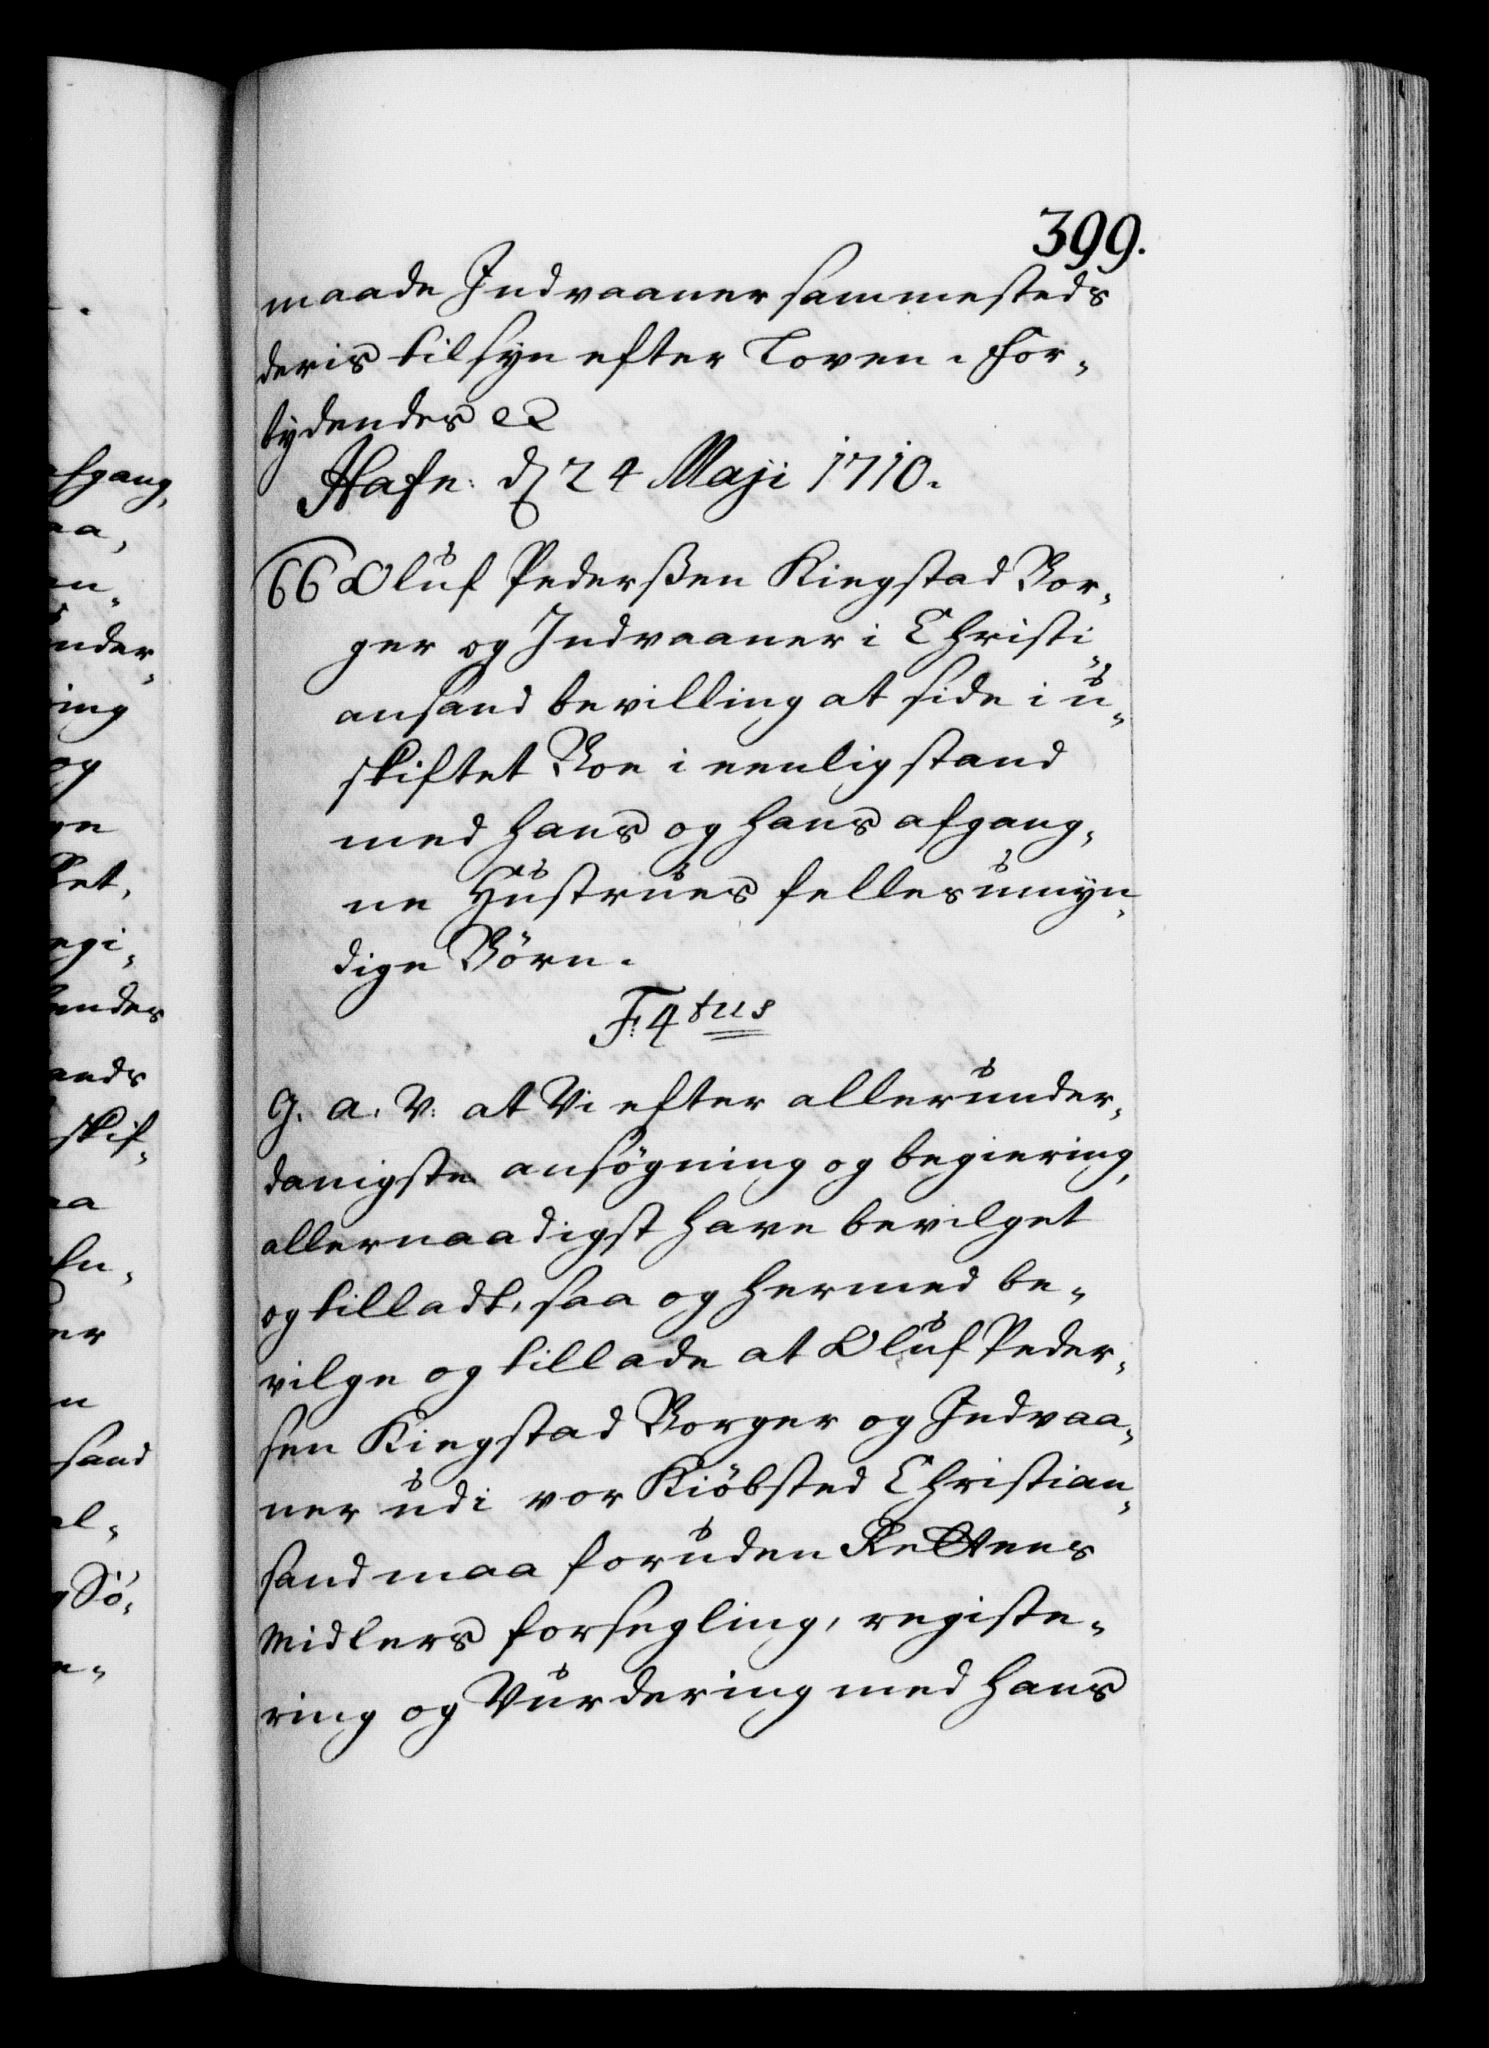 399.
maade Indvaaner sammesteds
deris tilsyn efter Loven. For-
bydendes etc
Hafn: d 24 Maji 1710.
66 Oluf Pederßen Ringstad Bor-
ger og Indvaaner i Christi-
ansand bevilling at side i u-
skiftet Boe i eenlig stand
med hans og hans afgang-
ne Hustrues felles umyn-
dige Börn.
F: 4tus
G. a. V: at Vi efter allerunder-
danigste ansøgning og begiering,
allernaadigst have bevilget
og tilladt, saa og hermed be-
vilge og tillade at Oluf Peder-
sen Ringstad Borger og Indvaa-
ner udi vor Kiöbsted Christian-
sand maa foruden Rettens
Midlers forsegling, registe-
ring og Vurdering med hans